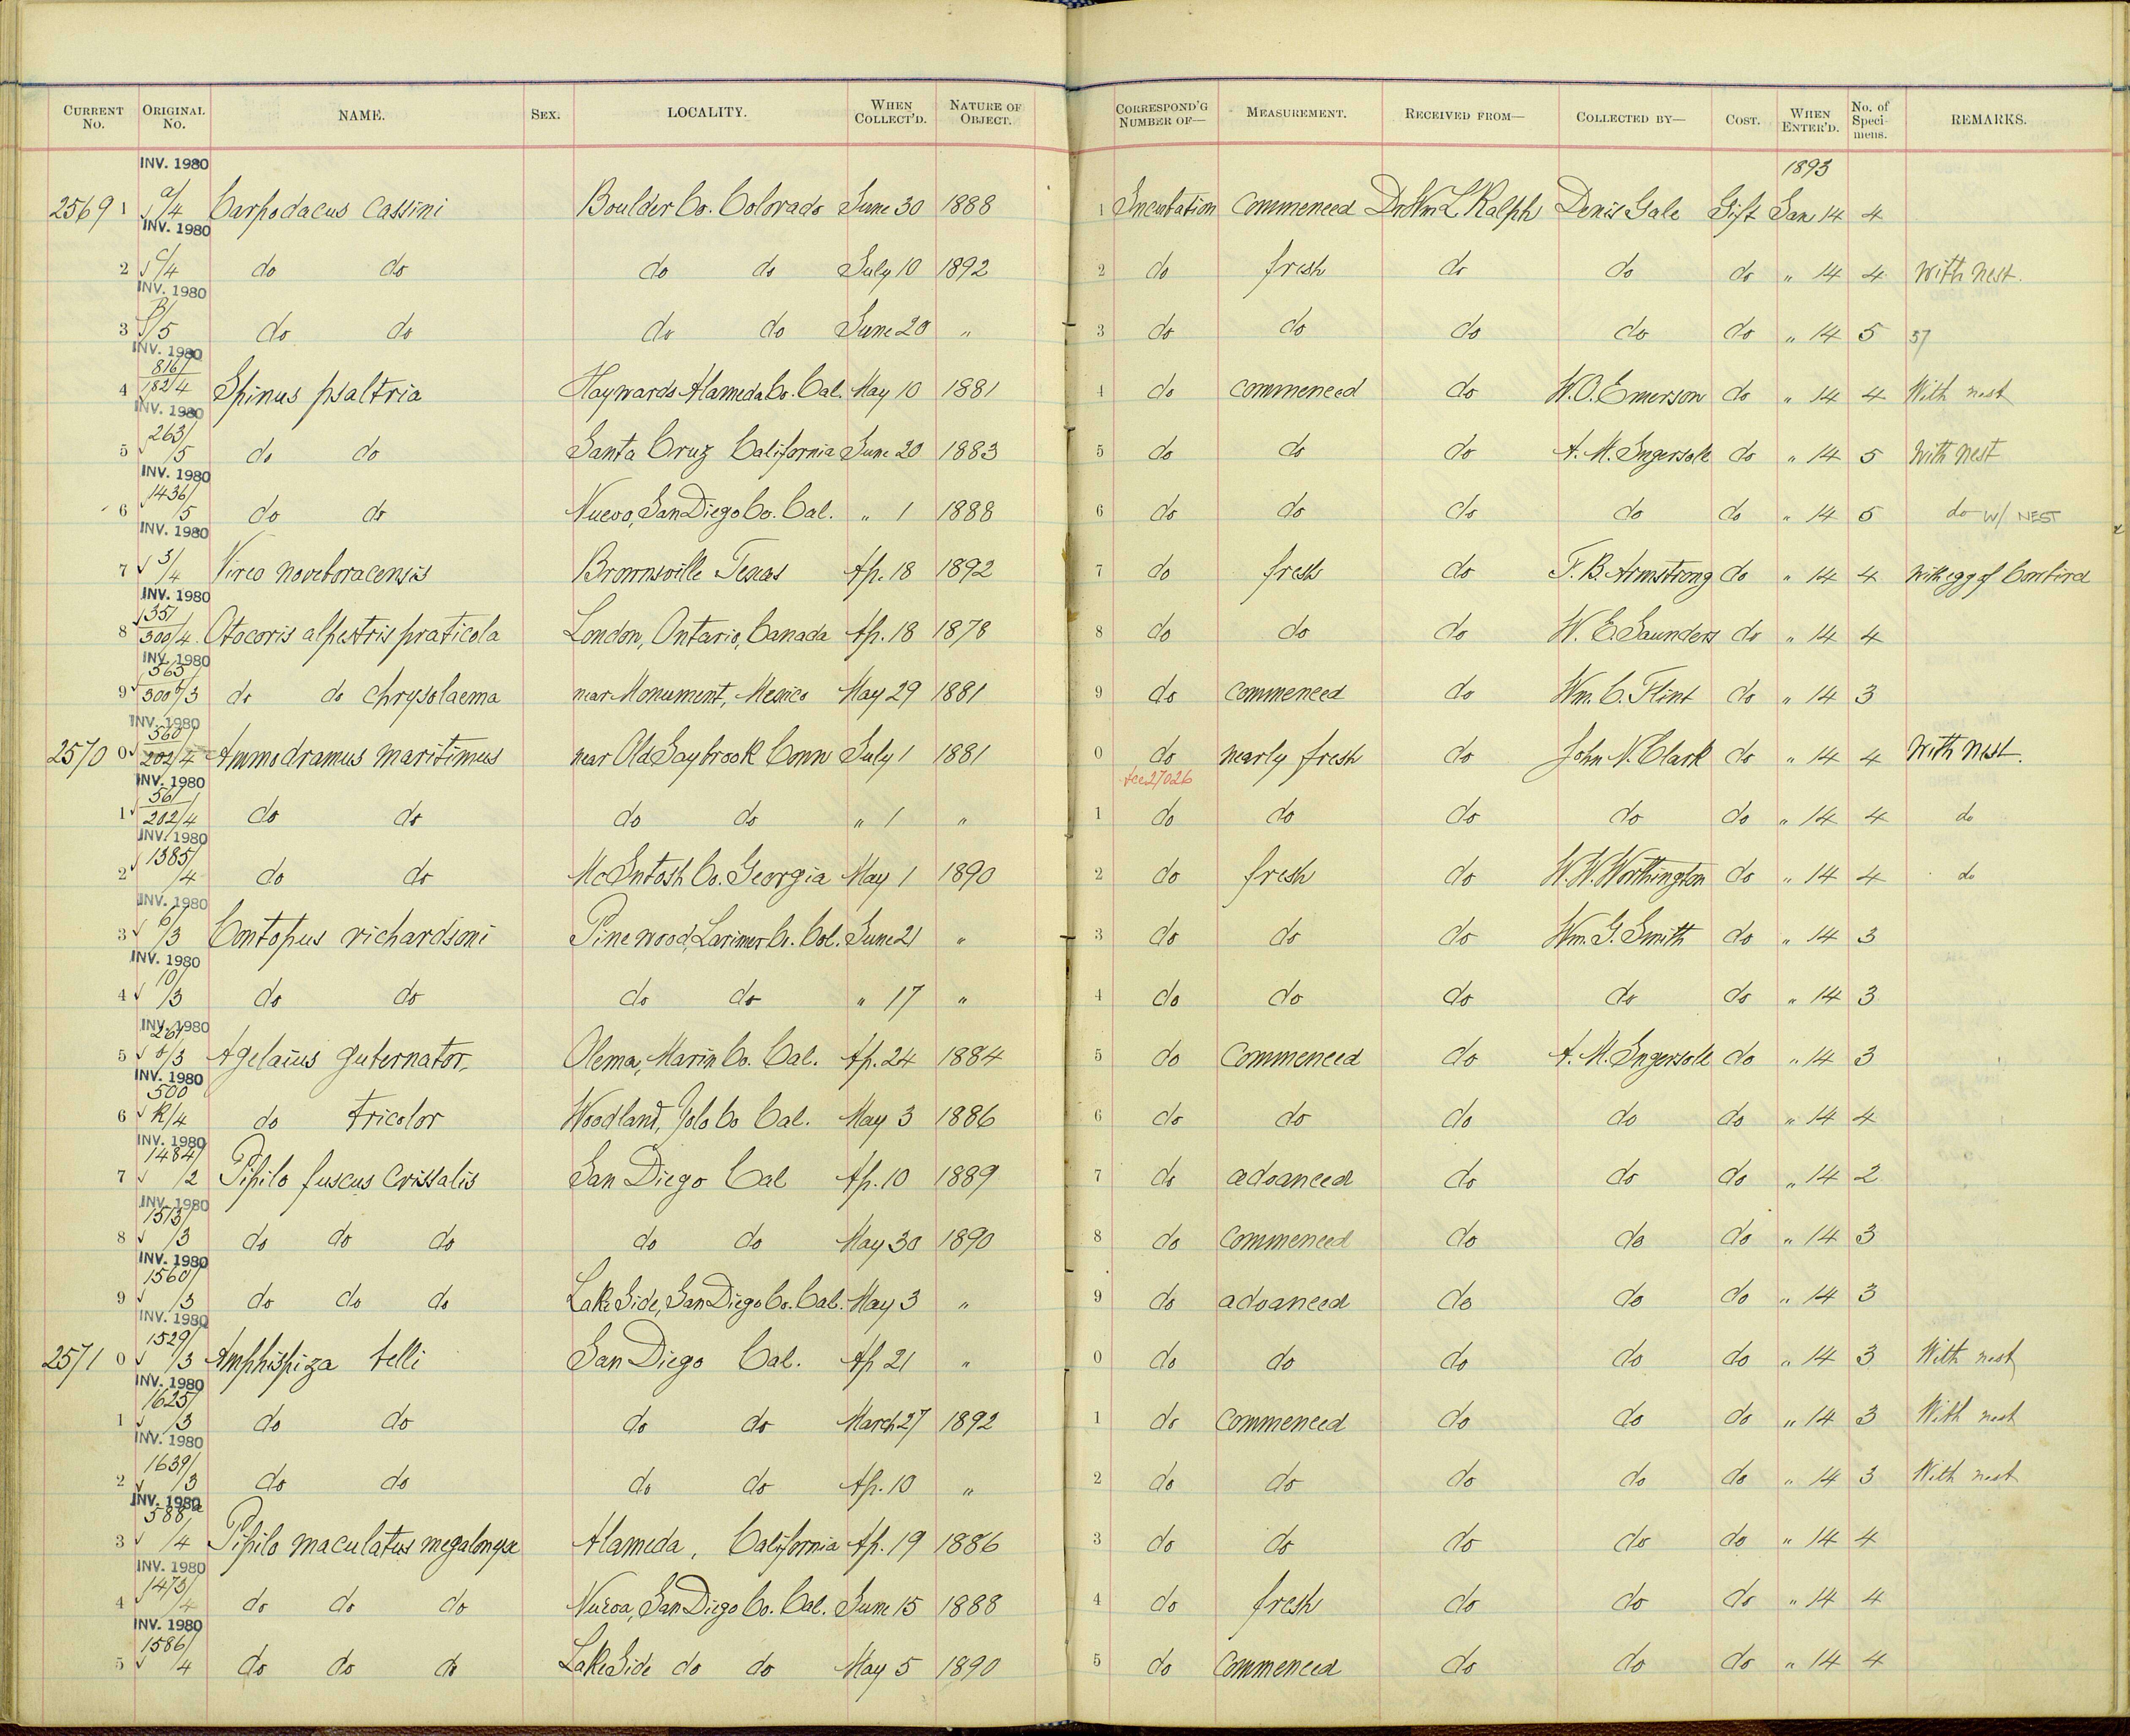 CURRENT No. ORIGINAL No. NAME. SEX. LOCALITY. WHEN COLLECT'D. NATURE OF OBJECT. CORRESPOND'G NUMBER OF— MEASUREMENT. RECEIVED FROM— COLLECTED BY— COST. WHEN ENTER'D. No. of Speci-mens. REMARKS.
INV. 1980 1893
2569 1 a/4 Carpodacus cassini Boulder Co. Colorado June 30 1888 1 Incubation commenced Dr Wm L Ralph Denis Gale Gift Jan 14 4
INV. 1980
2 c/4 do do do do July 10 1892 2 do fresh do do do " 14 4 With nest.
INV. 1980
3 /5 do do do do June 20 " 3 do do do do do " 14 5
INV. 1980
4 816/182/4 Spinus psaltria Haywards Alameda Co. Cal. May 10 1881 4 do commenced do W.O. Emerson do " 14 4 With nest
INV. 1980
5 263/5 do do Santa Cruz California June 20 1883 5 do do do A. M. Ingersoll do " 14 5 With nest
INV. 1980
6 1436/5 do do Nuevo, San Diego Co. Cal. " 1 1888 6 do do do do do " 14 5 do w/ NEST
INV. 1980
7 3/4 Vireo noveboracensis Brownsville Texas Ap. 18 1892 7 do fresh do F. B. Armstrong do " 14 4 With egg of Cowbird
INV. 1980
8 351/300/4 Otocoris alpestris praticola London, Ontario, Canada Ap. 18 1878 8 do do do W. E. Saunders do " 14 4
INV. 1980
9 563/300/3 do do chrysolaema near Monument, Mexico May 29 1881 9 do commenced do Wm. C. Flint do " 14 3
INV. 1980
2570 0 560/202/4 Ammodramus maritimus near Old Saybrook Conn July 1 1881 0 do nearly fresh do John N. Clark do " 14 4 With nest.
INV. 1980 see 27026
1 561/202/4 do do do do " 1 " 1 do do do do do " 14 4 do
INV. 1980
2 1385/4 do do McIntosh Co. Georgia May 1 1890 2 do fresh do W. W. Worthington do " 14 4 do
INV. 1980
3 6/3 Contopus richardsoni Pinewood, Larimer Co. Col. June 21 " 3 do do do Wm. G. Smith do " 14 3
INV. 1980
4 10/3 do do do do " 17 " 4 do do do do do " 14 3
INV. 1980
5 261/6/3 Agelaius gubernator, Olema, Marin Co. Cal. Ap. 24 1884 5 do commenced do A. M. Ingersoll do " 14 3
INV. 1980
6 500 K/4 do tricolor Woodland, Yolo Co Cal. May 3 1886 6 do do do do do " 14 4
INV. 1980
7 1484/2 Pipilo fuscus crissalis San Diego Cal Ap. 10 1889 7 do advanced do do do " 14 2
INV. 1980
8 1513/3 do do do do do May 30 1890 8 do commenced do do do " 14 3
INV. 1980
9 1560/3 do do do Lake Side, San Diego Co. Cal. May 3 " 9 do advanced do do do " 14 3
INV. 1980
2571 0 1529/3 Amphispiza belli San Diego Cal. Ap 21 " 0 do do do do do " 14 3 With nest
INV. 1980
1 1625/3 do do do do March 27 1892 1 do commenced do do do " 14 3 With nest
INV. 1980
2 1639/3 do do do do Ap. 10 " 2 do do do do do " 14 3 With nest
INV. 1980
3 588a/4 Pipilo maculatus megalonyx Alameda, California Ap. 19 1886 3 do do do do do " 14 4
INV. 1980
4 1473/4 do do do Nuevo, San Diego Co. Cal. June 15 1888 4 do fresh do do do " 14 4
INV. 1980
5 1586/4 do do do Lake Side do do May 5 1890 5 do commenced do do do " 14 4